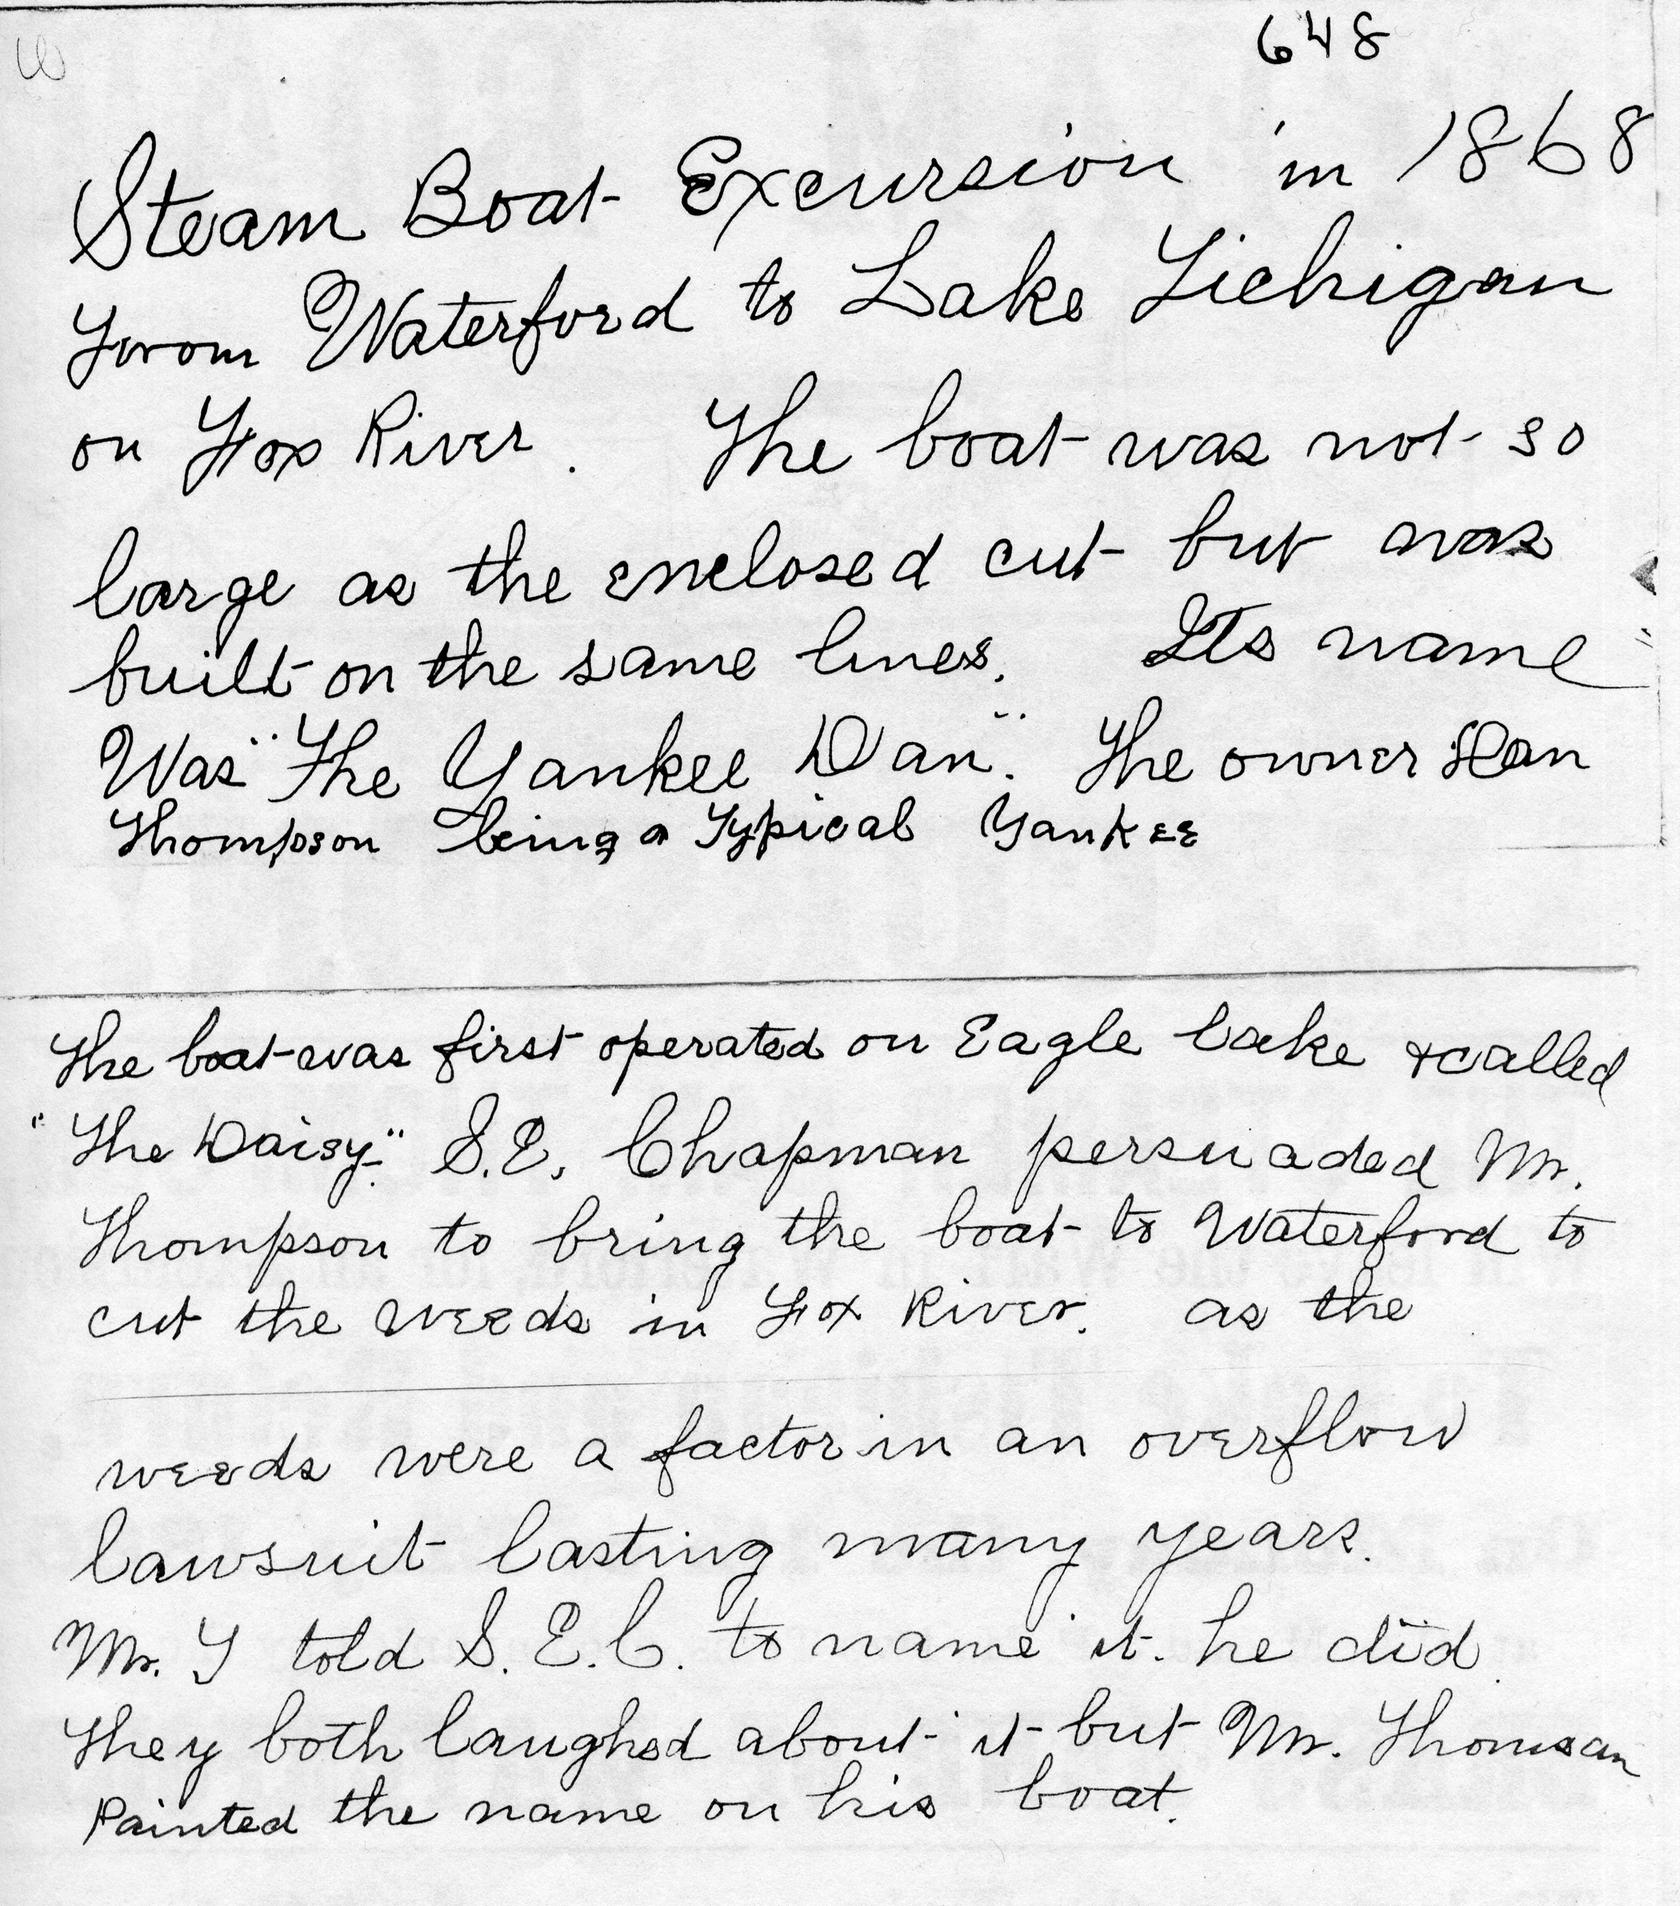 648
Steam Boat Excursion in 1868
From Waterford to Lake Tichigan
on Fox River. The boat was not so
large as the enclosed cut but was
built on the same lines. Its name
Was "The Yankee Dan". The owner Dan
Thompson being a Typical Yankee
The boat was first operated on Eagle Lake & called
"The Daisy." S.E. Chapman persuaded Mr.
Thompson to bring the boat to Waterford to
cut the weeds in Fox River. as the
weeds were a factor in an overflow
lawsuit lasting many years.
Mr. T told S.E.C. to name it. he did.
They both laughed about it but Mr. Thomsan
Painted the name on his boat.